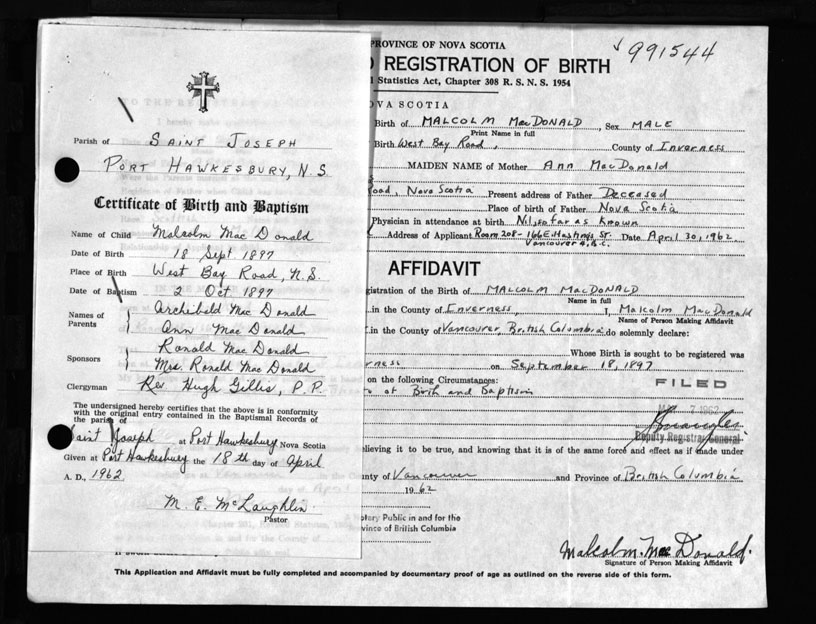 Parish of SAINT JOSEPH
PORT HAWKESBURY, N.S.
Certificate of Birth and Baptism
Name of Child Malcolm Mac Donald
Date of Birth 18 Sept 1897
Place of Birth West Bay Road, N.S.
Date of Baptism 2 Oct 1897
Names of Parents Archibald Mac Donald
Ann Mac Donald
Sponsors Ronald Mac Donald
Mrs. Ronald Mac Donald
Clergyman Rev. Hugh Gillis, P.P.
The undersigned hereby certifies that the above is in conformity
with the original entry contained in the Baptismal Records of
the parish of
Saint Joseph at Port Hawkesbury Nova Scotia
Given at Port Hawkesbury the 18th day of April
A. D., 1962
M. E. McLaughlin
Pastor
PROVINCE OF NOVA SCOTIA
991544
REGISTRATION OF BIRTH
Statistics Act, Chapter 308 R. S. N. S. 1954
NOVA SCOTIA
Birth of MALCOLM MacDONALD, Sex MALE
Print Name in full
Birth West Bay Road, County of Inverness
MAIDEN NAME of Mother Ann MacDonald
Road, Nova Scotia Present address of Father Deceased
Place of birth of Father Nova Scotia
Physician in attendance at birth Nil, so far as known
Address of Applicant Room 208 - 166 E. Hastings St. Vancouver 4, B.C. Date April 30, 1962
AFFIDAVIT
registration of the Birth of MALCOLM MacDONALD
Name in full
in the County of Inverness, I, Malcolm MacDonald
Name of Person Making Affidavit
in the County of Vancouver, British Columbia do solemnly declare:
Whose Birth is sought to be registered was
on September 18, 1897
FILED
on the following Circumstances:
of Birth and Baptism
1962
Deputy Registrar General
believing it to be true, and knowing that it is of the same force and effect as if made under
County of Vancouver and Province of British Columbia
1962
Notary Public in and for the
Province of British Columbia
Malcolm Mac Donald.
Signature of Person Making Affidavit
This Application and Affidavit must be fully completed and accompanied by documentary proof of age as outlined on the reverse side of this form.